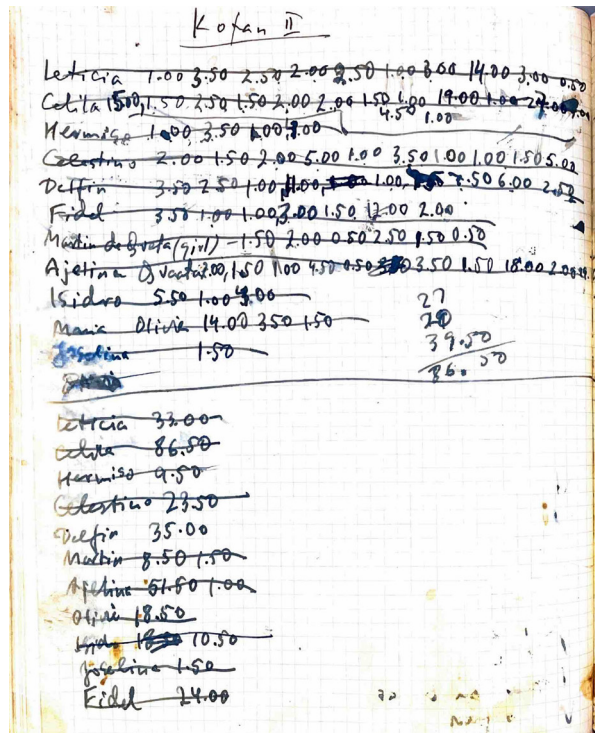 Kofan II
Leticia 1.00 3.50 2.50 2.00 2.50 1.00 3.00 14.00 3.00 0.50
Celila 1500, 1.50 2.50 1.50 2.00 2.00 1.50 1.00 19.00 1.00
4.50 1.00
Hermiso 1.00 3.50 1.00 1.00
Celestino 2.00 1.50 2.00 5.00 1.00 3.50 1.00 1.00 1.50 5.00
Delfin 3.50 2.50 1.00 1.00 7.50 6.00 2.50
Fidel 3.50 1.00 1.00 3.00 1.50 12.00 2.00
Martin (girl) - 1.50 2.00 0.50 2.50 1.50 0.50
Ajelina 1.50 1.00 4.50 0.50 3.50 1.50 18.00 2.00
Isidro 5.50 1.00 4.00 27
Maria Olivia 14.00 3.50 1.50 20
Joselina 1.50 39.50
86.50
Leticia 33.00
Celila 86.50
Hermiso 9.50
Celestino 23.50
Delfin 35.00
Martin 8.50 1.50
Ajelina 51.50 1.00
Olivia 18.50
Isidro 10.50
Joselina 1.50
Fidel 24.00